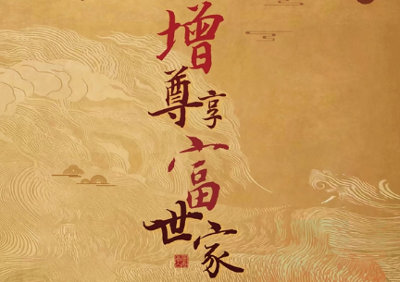 增
尊享
富
世家